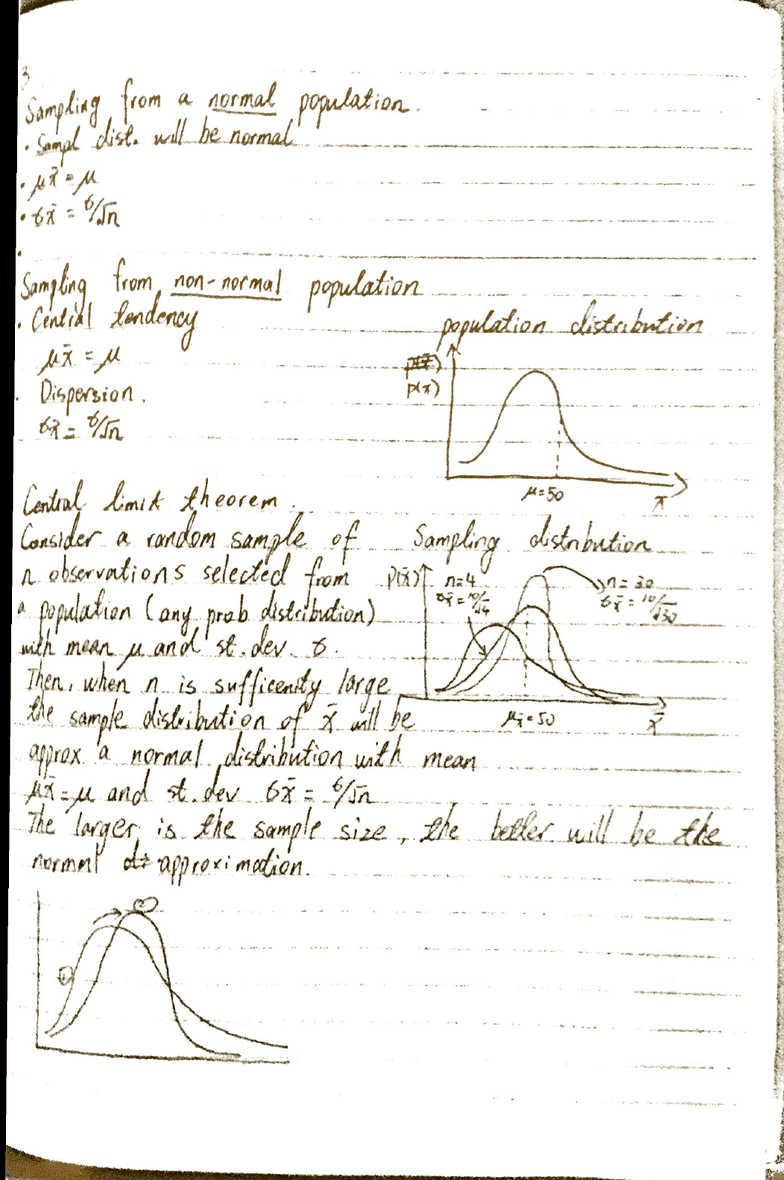 3
Sampling from a normal population.
• Sampl dist. will be normal
• μx̄ = μ
• σx̄ = σ/√n
•
Sampling from non-normal population
• Central tendency
μx̄ = μ
• Dispersion.
σx̄ = σ/√n
population distribution
p(x)
μ=50
x
Central limit theorem.
Consider a random sample of
n observations selected from
a population (any prob distribution)
with mean μ and st.dev σ.
Then, when n is sufficenity large
the sample distribution of x̄ will be
approx a normal distribution with mean
μx̄ = μ and st.dev σx̄ = σ/√n
The larger is the sample size, the better will be the
normal approximation.
Sampling distribution
p(x̄)
n=4
σx̄ = 10/√4
n=30
σx̄ = 10/√30
μx̄ = 50
x̄